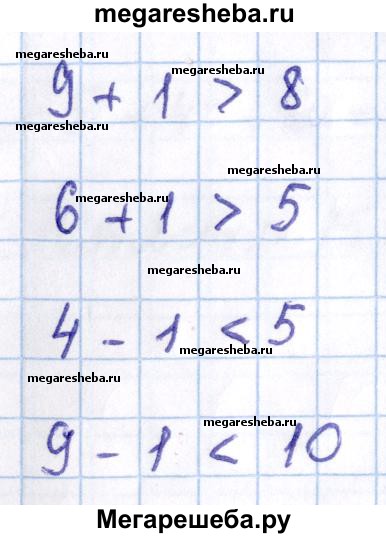 megaresheba.ru
megaresheba.ru
megaresheba.ru
9 + 1 > 8
megaresheba.ru
megaresheba.ru
megaresheba.ru
6 + 1 > 5
megaresheba.ru
4 - 1 < 5
megaresheba.ru
megaresheba.ru
megaresheba.ru
9 - 1 < 10
Мегарешеба.ру